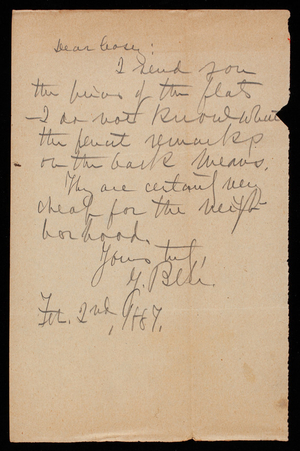 Dear Casey:
I send you
the prices of the flats
I do not know what
the pencil remarks
on the back means.
They are certainly very
cheap for the neigh-
borhood.
Yours truly,
Feb. 2nd, 1887.